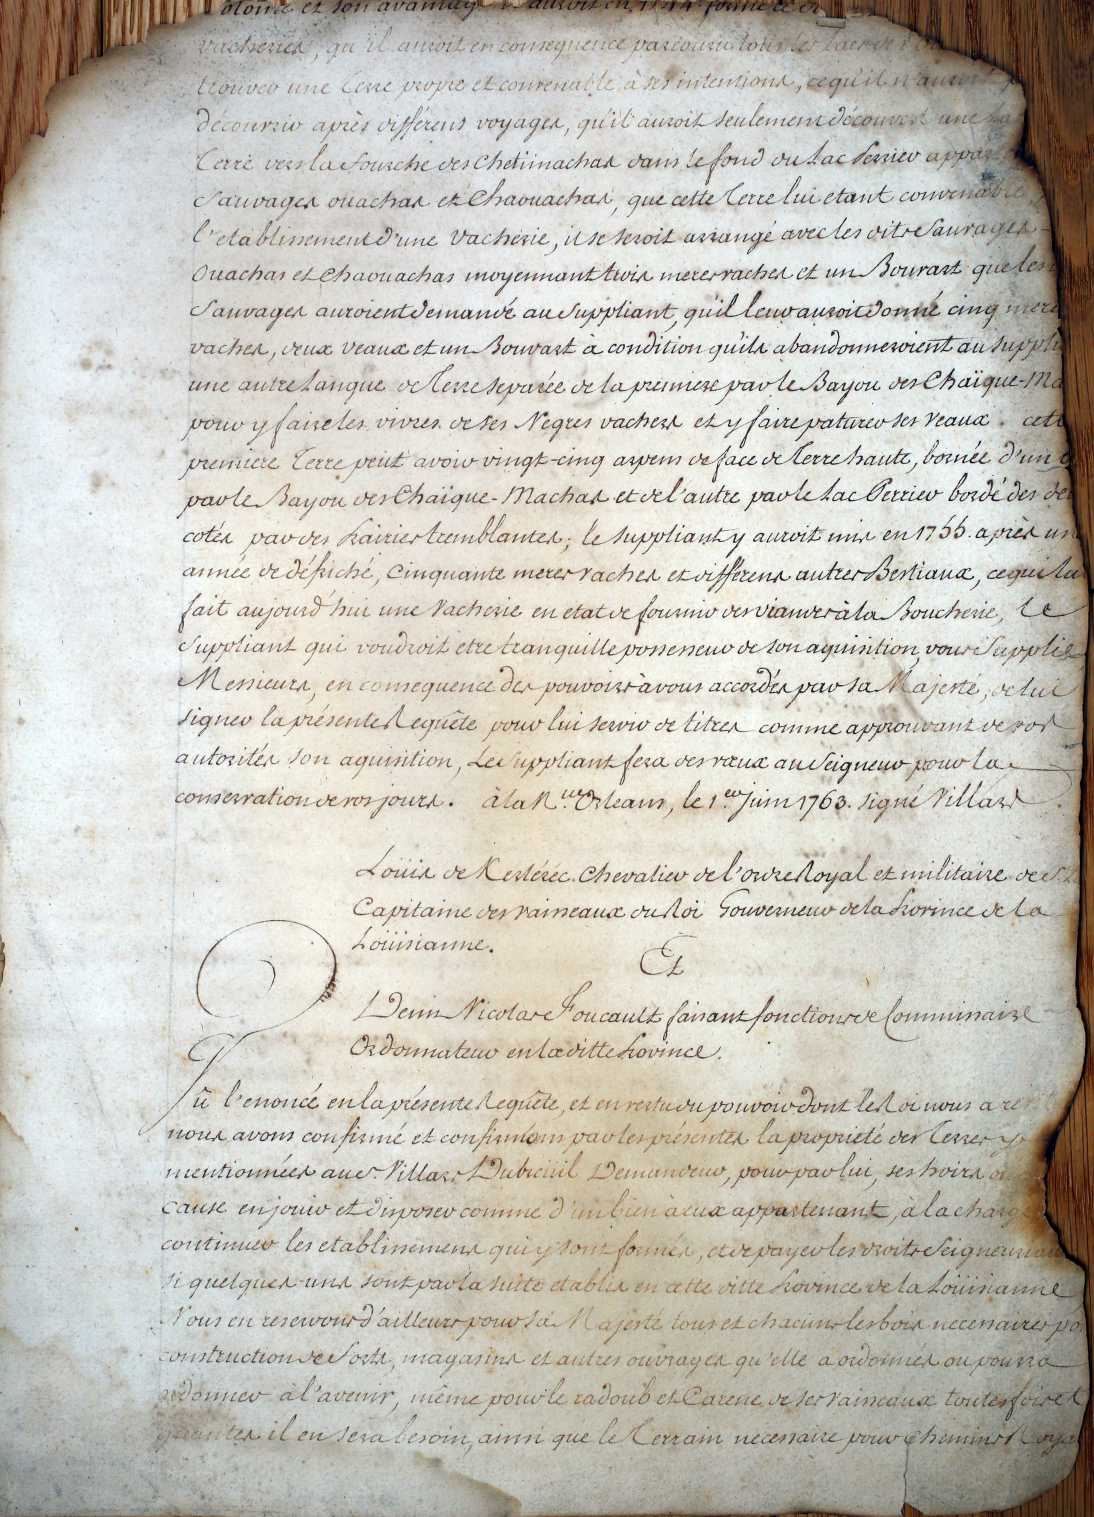 et son avantage auroit en 1744 formé
vacheries, qu'il auroit en consequence parcouru tous les Lacs
trouver une Terre propre et convenable à ses intentions, ce qu'il n'auroit
découvrir après différens voyages, qu'il auroit seulement découvert une
Terre vers la fourche des Chetimachas dans le fond du Lac Perrier
Sauvages ouachas et Chaouachas, que cette Terre lui etant convenable
l'etablissement d'une Vacherie, il se seroit arrangé avec les dits Sauvages
Ouachas et Chaouachas moyennant trois meres vaches et un Bouvart que les
Sauvages auroient demandé au Suppliant, qu'il leur auroit donné cinq mere
vaches, deux veaux et un Bouvart à condition qu'ils abandonneroient au suppli
une autre Langue de Terre separée de la premiere par le Bayou des Chaïque-Ma
pour y faire les vivres de ses Negres vachers et y faire paturer ses veaux. cette
premiere Terre peut avoir vingt-cinq arpens de face de Terre haute, bornée d'un
par le Bayou des Chaïque-Machas et de l'autre par le Lac Perrier bordé des de
cotés par des Prairies tremblantes; le suppliant y auroit mis en 1755. après un
année de défriché, Cinquante meres vaches et différens autres Bestiaux, ce qui lu
fait aujourd'hui une vacherie en etat de fournir des viandes à la Boucherie, Le
Suppliant qui voudroit etre tranquille possesseur de son aquisition, vous Supplie
Messieurs, en consequence des pouvoirs à vous accordés par sa Majesté, de lui
signer la présente Requête pour lui servir de titres comme approuvant de vos
autorités son aquisition, Le Suppliant fera des vœux au Seigneur pour la
conservation de vos jours. à la N.lle Orleans, le 1.er Juin 1763. signé Villars
Loüis de Kerlérec. Chevalier de l'ordre Royal et militaire de S.t L
Capitaine des vaisseaux du Roi Gouverneur de la Province de la
Loüisianne.
Et
Denis Nicolas Foucault faisant fonctions de Commissaire
Ordonnateur en la ditte Province.
Vû l'enoncé en la présente Requête, et en vertu du pouvoir dont le Roi nous a
nous avons confirmé et confirmons par les présentes la proprieté des Terres y
mentionnées au S.r Villars Dubreüil Demandeur, pour par lui, ses hoirs
cause en jouir et disposer comme d'un bien à eux appartenant, à la charge
continuer les etablissemens qui y sont formés, et de payer les droits Seigneuriau
si quelques-uns sont par la suite etablis en cette ditte Province de la Loüisianne
Nous en reservons d'ailleurs pour sa Majesté tous et chacuns les bois necessaires po
construction de Forts, magasins et autres ouvrages qu'elle a ordonnés ou pourra
ordonner à l'avenir, même pour le radoub et Carene de ses vaisseaux toutes fois et
quantes il en sera besoin, ainsi que le Terrain necessaire pour Chemins Roya